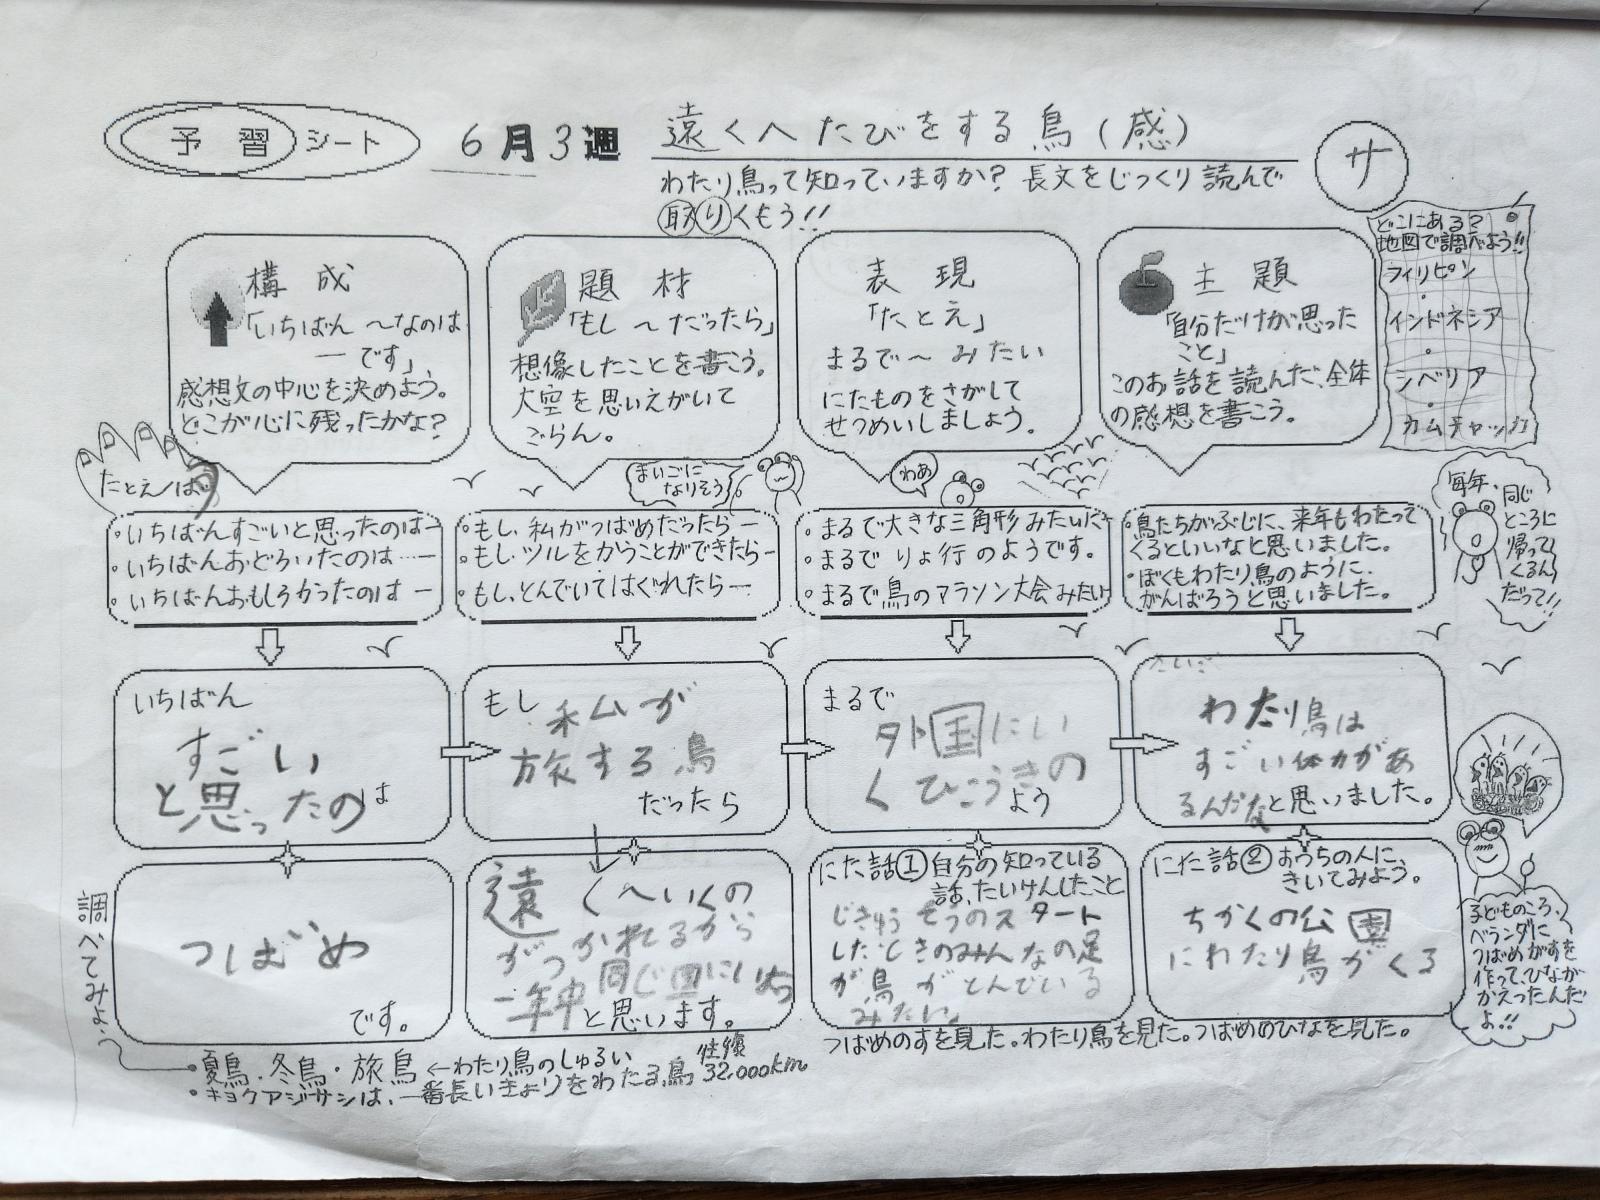 予習シート 6月3週 遠くへたびをする鳥(感) サ
わたり鳥って知っていますか? 長文をじっくり読んで
取りくもう!!
どこにある?
地図で調べよう!!
フィリピン
・
インドネシア
・
シベリア
・
カムチャッカ
構成
「いちばん 〜なのは
― です」
感想文の中心を決めよう。
どこが心に残ったかな?
題材
「もし 〜 だったら」
想像したことを書こう。
大空を思いえがいて
ごらん。
表現
「たとえ」
まるで〜 みたい
にたものをさがして
せつめいしましょう。
主題
「自分だけが思った
こと」
このお話を読んだ、全体
の感想を書こう。
たとえば
まいごに
なりそう
わあ
毎年、
同じ
ところに
帰って
くるん
だって!!
・いちばんすごいと思ったのは―
・いちばんおどろいたのは…―
・いちばんおもしろかったのは―
・もし、私がつばめだったら―
・もし、ツルをかうことができたら―
・もし、とんでいてはぐれたら―
・まるで大きな三角形みたいに
・まるで りょ行 のようです。
・まるで鳥のマラソン大会みたい
・鳥たちがぶじに、来年もわたって
くるといいなと思いました。
・ぼくもわたり鳥のように、
がんばろうと思いました。
いちばん
すごい
と思ったのは
もし 私が
旅する鳥
だったら
まるで
外国にい
くひこうきの
よう
わたり鳥は
すごい体力があ
るんだなと思いました。
つばめ
です。
遠くへいくの
がつかれるから
一年中同じ国にいよう
と思います。
にた話① 自分の知っている
話、たいけんしたこと
じきゅうそうのスタート
したときのみんなの足
が鳥がとんでいる
みたい。
にた話② おうちの人に、
きいてみよう。
ちかくの公園
にわたり鳥がくる
子どものころ、
ベランダに
つばめがすを
作って、ひなが
かえったんだ
よ!!
つばめのすを見た。わたり鳥を見た。つばめのひなを見た。
調べてみよう
・夏鳥・冬鳥・旅鳥 ←わたり鳥のしゅるい
・キョクアジサシは、一番長いきょりをわたる鳥 往復 32,000km